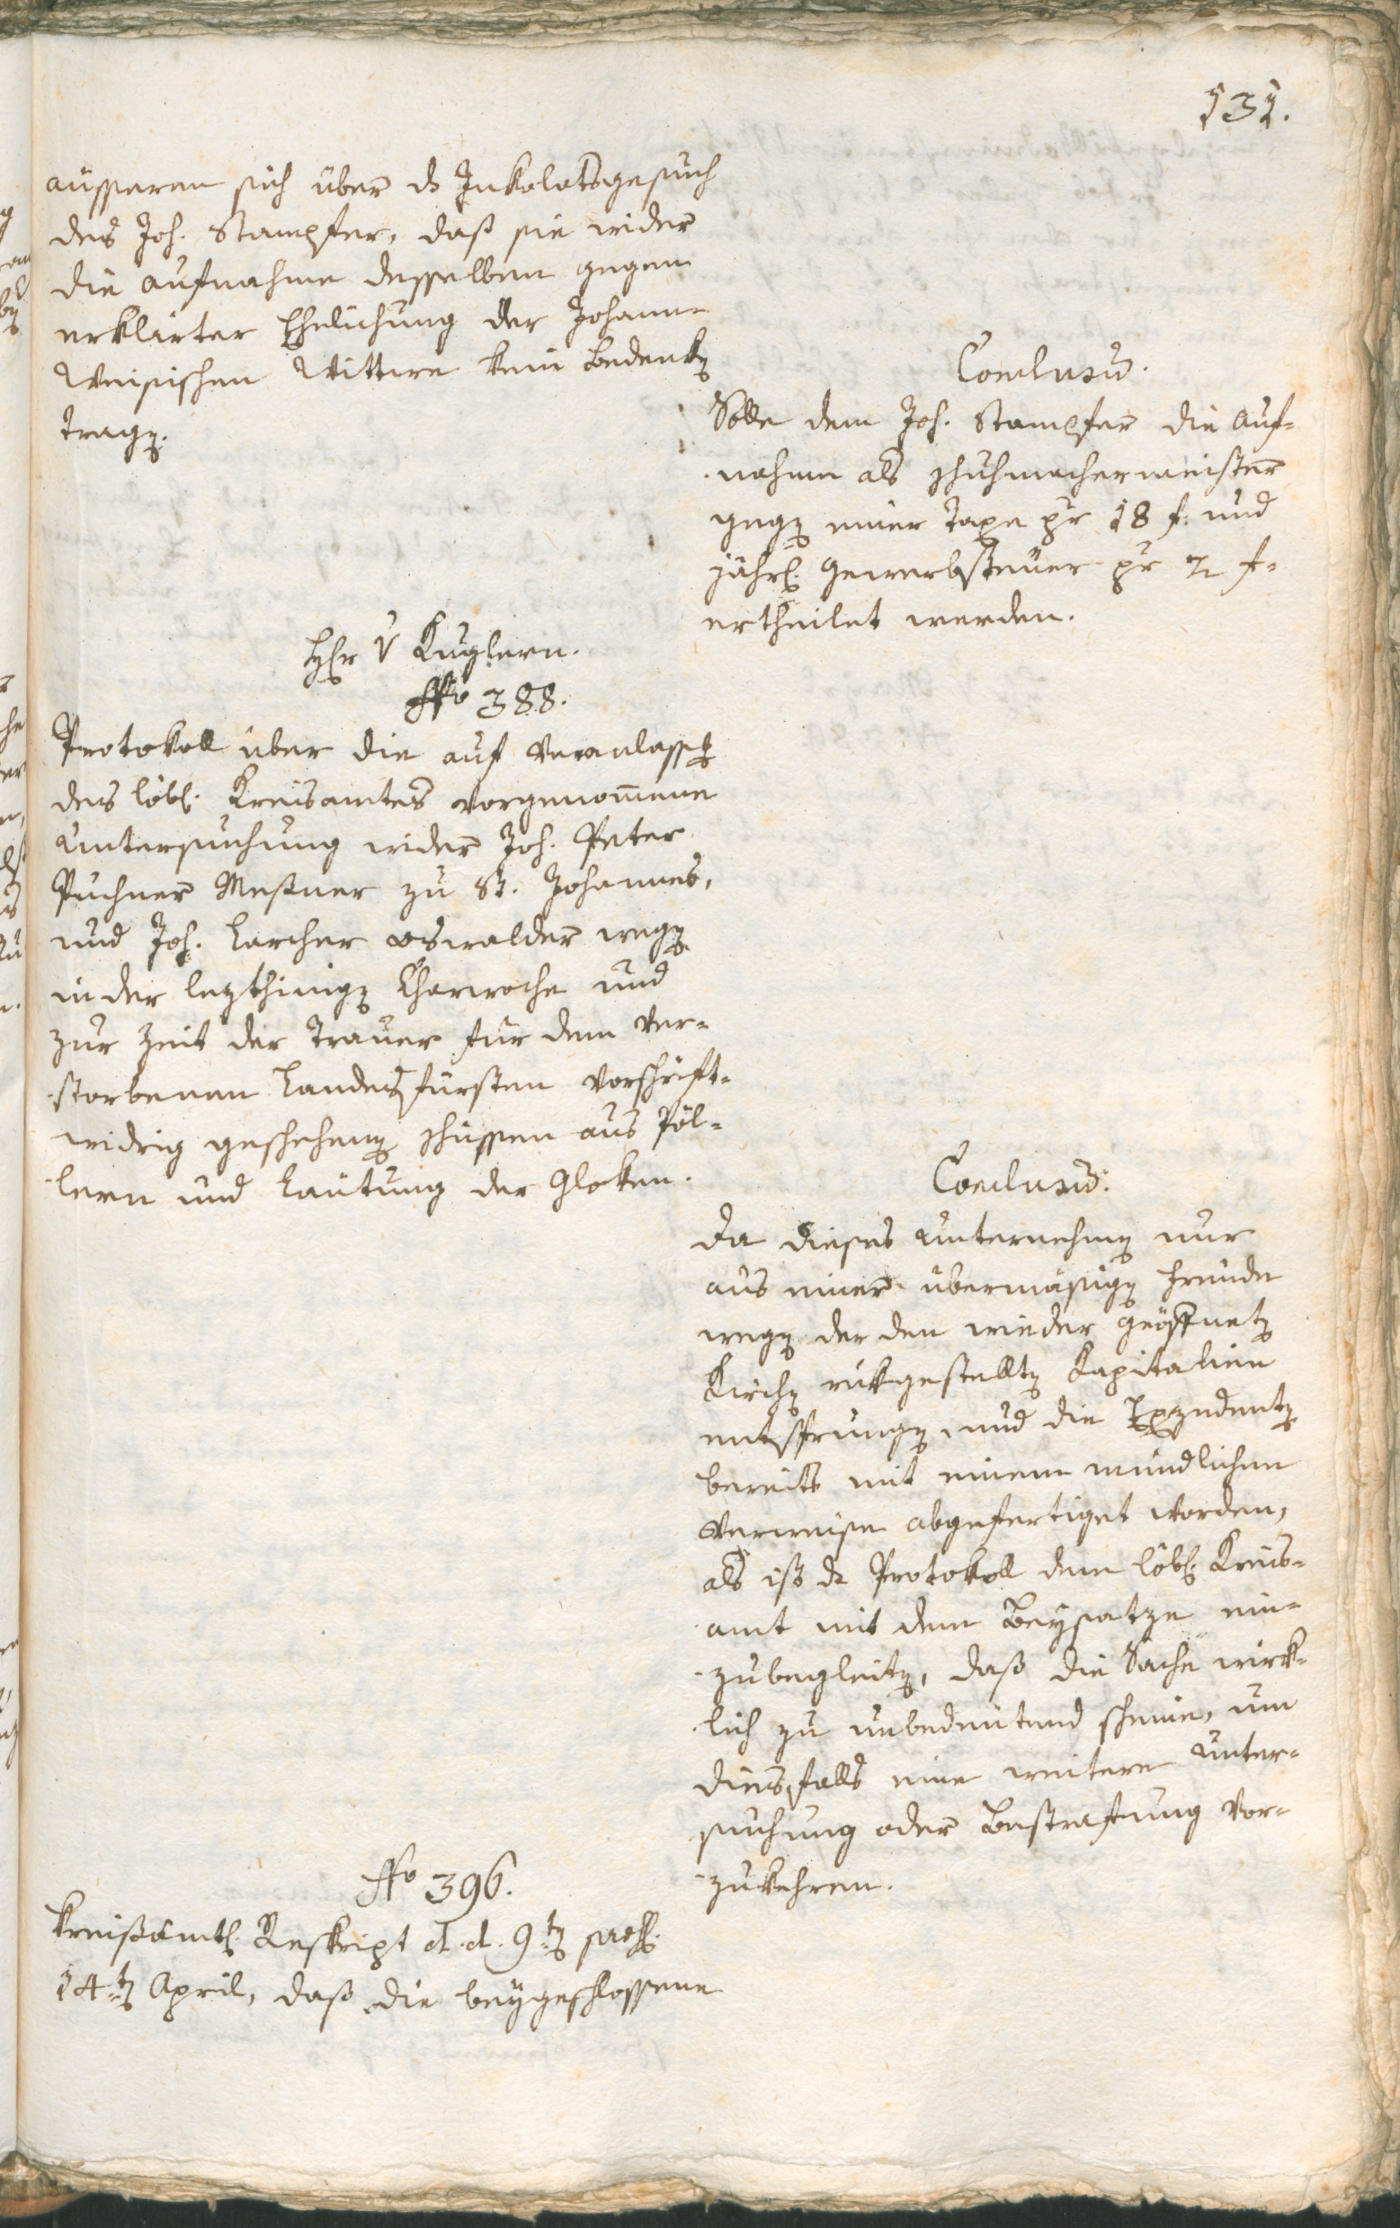 131.
äusseren sich über ds Inkolatsgesuch
des Joh. Stampfer, daß sie wider
die Aufnahme desselben gegen
erklärter Ehelichung der Johann-
Weisischen Wittwe kein Bedenken
tragen.
Conclusum.
Solle dem Joh. Stampfer die Auf-
nahme als Schuhmachermeister
gegen einer Taxe pr 18 f. und
jährl. Gewerbsteuer pr 2 f.
ertheilet werden.
Hr v Kuglern.
No 388.
Protokoll über die auf Veranlassung
des löbl. Kreisamtes vorgenommene
Untersuchung wider Joh. Peter
Puchner Meßner zu St. Johannes,
und Joh. Larcher Oswalder wegen
in der lezthinigen Charwoche und
zur Zeit der Trauer für dem ver-
storbenen Landesfürsten vorschrift-
widrig geschehenen Schüssen aus Pöl-
lern und Läutung der Gloken.
Conclusum.
Da dieses Unternehmen nur
aus einer übermäsigen Freude
wegen der den wieder geöffneten
Kirchen rükgestellten Kapitalien
entsprungen und die Exzedenten
bereits mit einem mündlichen
Verweise abgefertiget worden,
als ist ds Protokoll dem löbl. Kreis-
amt mit dem Beysatze ein-
zubegleiten, daß die Sache wirk-
lich zu unbedeutend scheine, um
diesfalls eine weitere Unter-
suchung oder Bestrafung vor-
zukehren.
No 396.
Kreisämtl. Reskript d. d. 9ten praes.
14ten April, daß die beygeschlossene